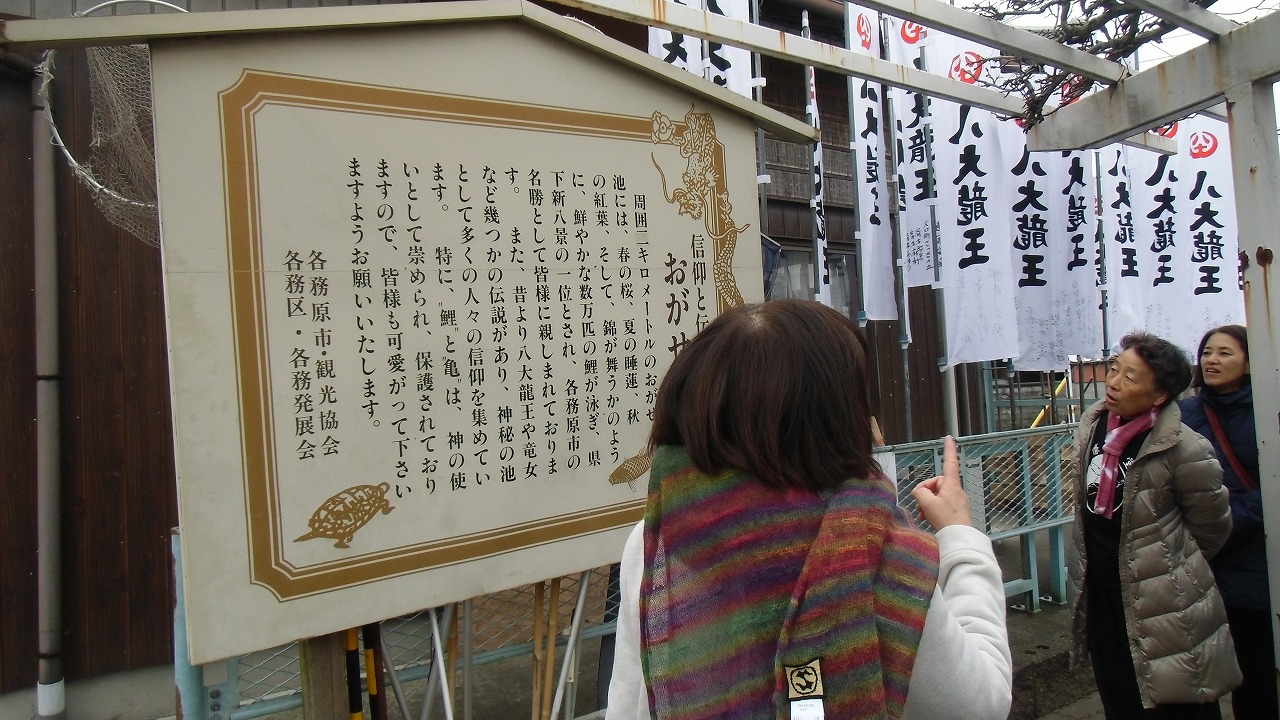 信仰と伝
おがせ
周囲二キロメートルのおがせ
池には、春の桜、夏の睡蓮、秋
の紅葉、そして、錦が舞うかのよう
に、鮮やかな数万匹の鯉が泳ぎ、県
下新八景の一位とされ、各務原市の
名勝として皆様に親しまれておりま
す。また、昔より八大龍王や竜女
など幾つかの伝説があり、神秘の池
として多くの人々の信仰を集めてい
ます。 特に、"鯉"と"亀"は、神の使
いとして崇められ、保護されており
ますので、皆様も可愛がって下さい
ますようお願いいたします。
各務原市・観光協会
各務区・各務発展会
八大龍王
八大龍王
八大龍王
八大龍王
八大龍王
八大龍王